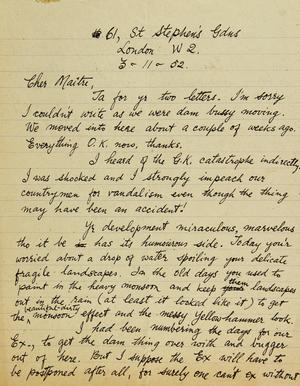 61, St Stephen's Gdns
London W 2.
3-11-52.
Cher Maitre,
Ta for yr two letters. I'm sorry
I couldn't write as we were dam busy moving.
We moved into here about a couple of weeks ago.
Everything O.K. now, thanks.
I heard of the G.K. catastrophe indirectly.
I was shocked and I strongly impeach our
countrymen for vandalism even though the thing
may have been an accident!
Yr development miraculous, marvelous
tho it be has its humourous side. Today you're
worried about a drop of water spoiling your delicate
fragile landscapes. In the old days you used to
paint in the heavy monsoon and keep them landscapes
out in the rain (at least it looked like it) to get
the beautiful-dirty monsoon effect and the messy Yellowhammer look.
I had been numbering the days for our
Ex., to get the dam thing over with and bugger
out of here. But I suppose the Ex will have to
be postponed after all, for surely one can't ex without